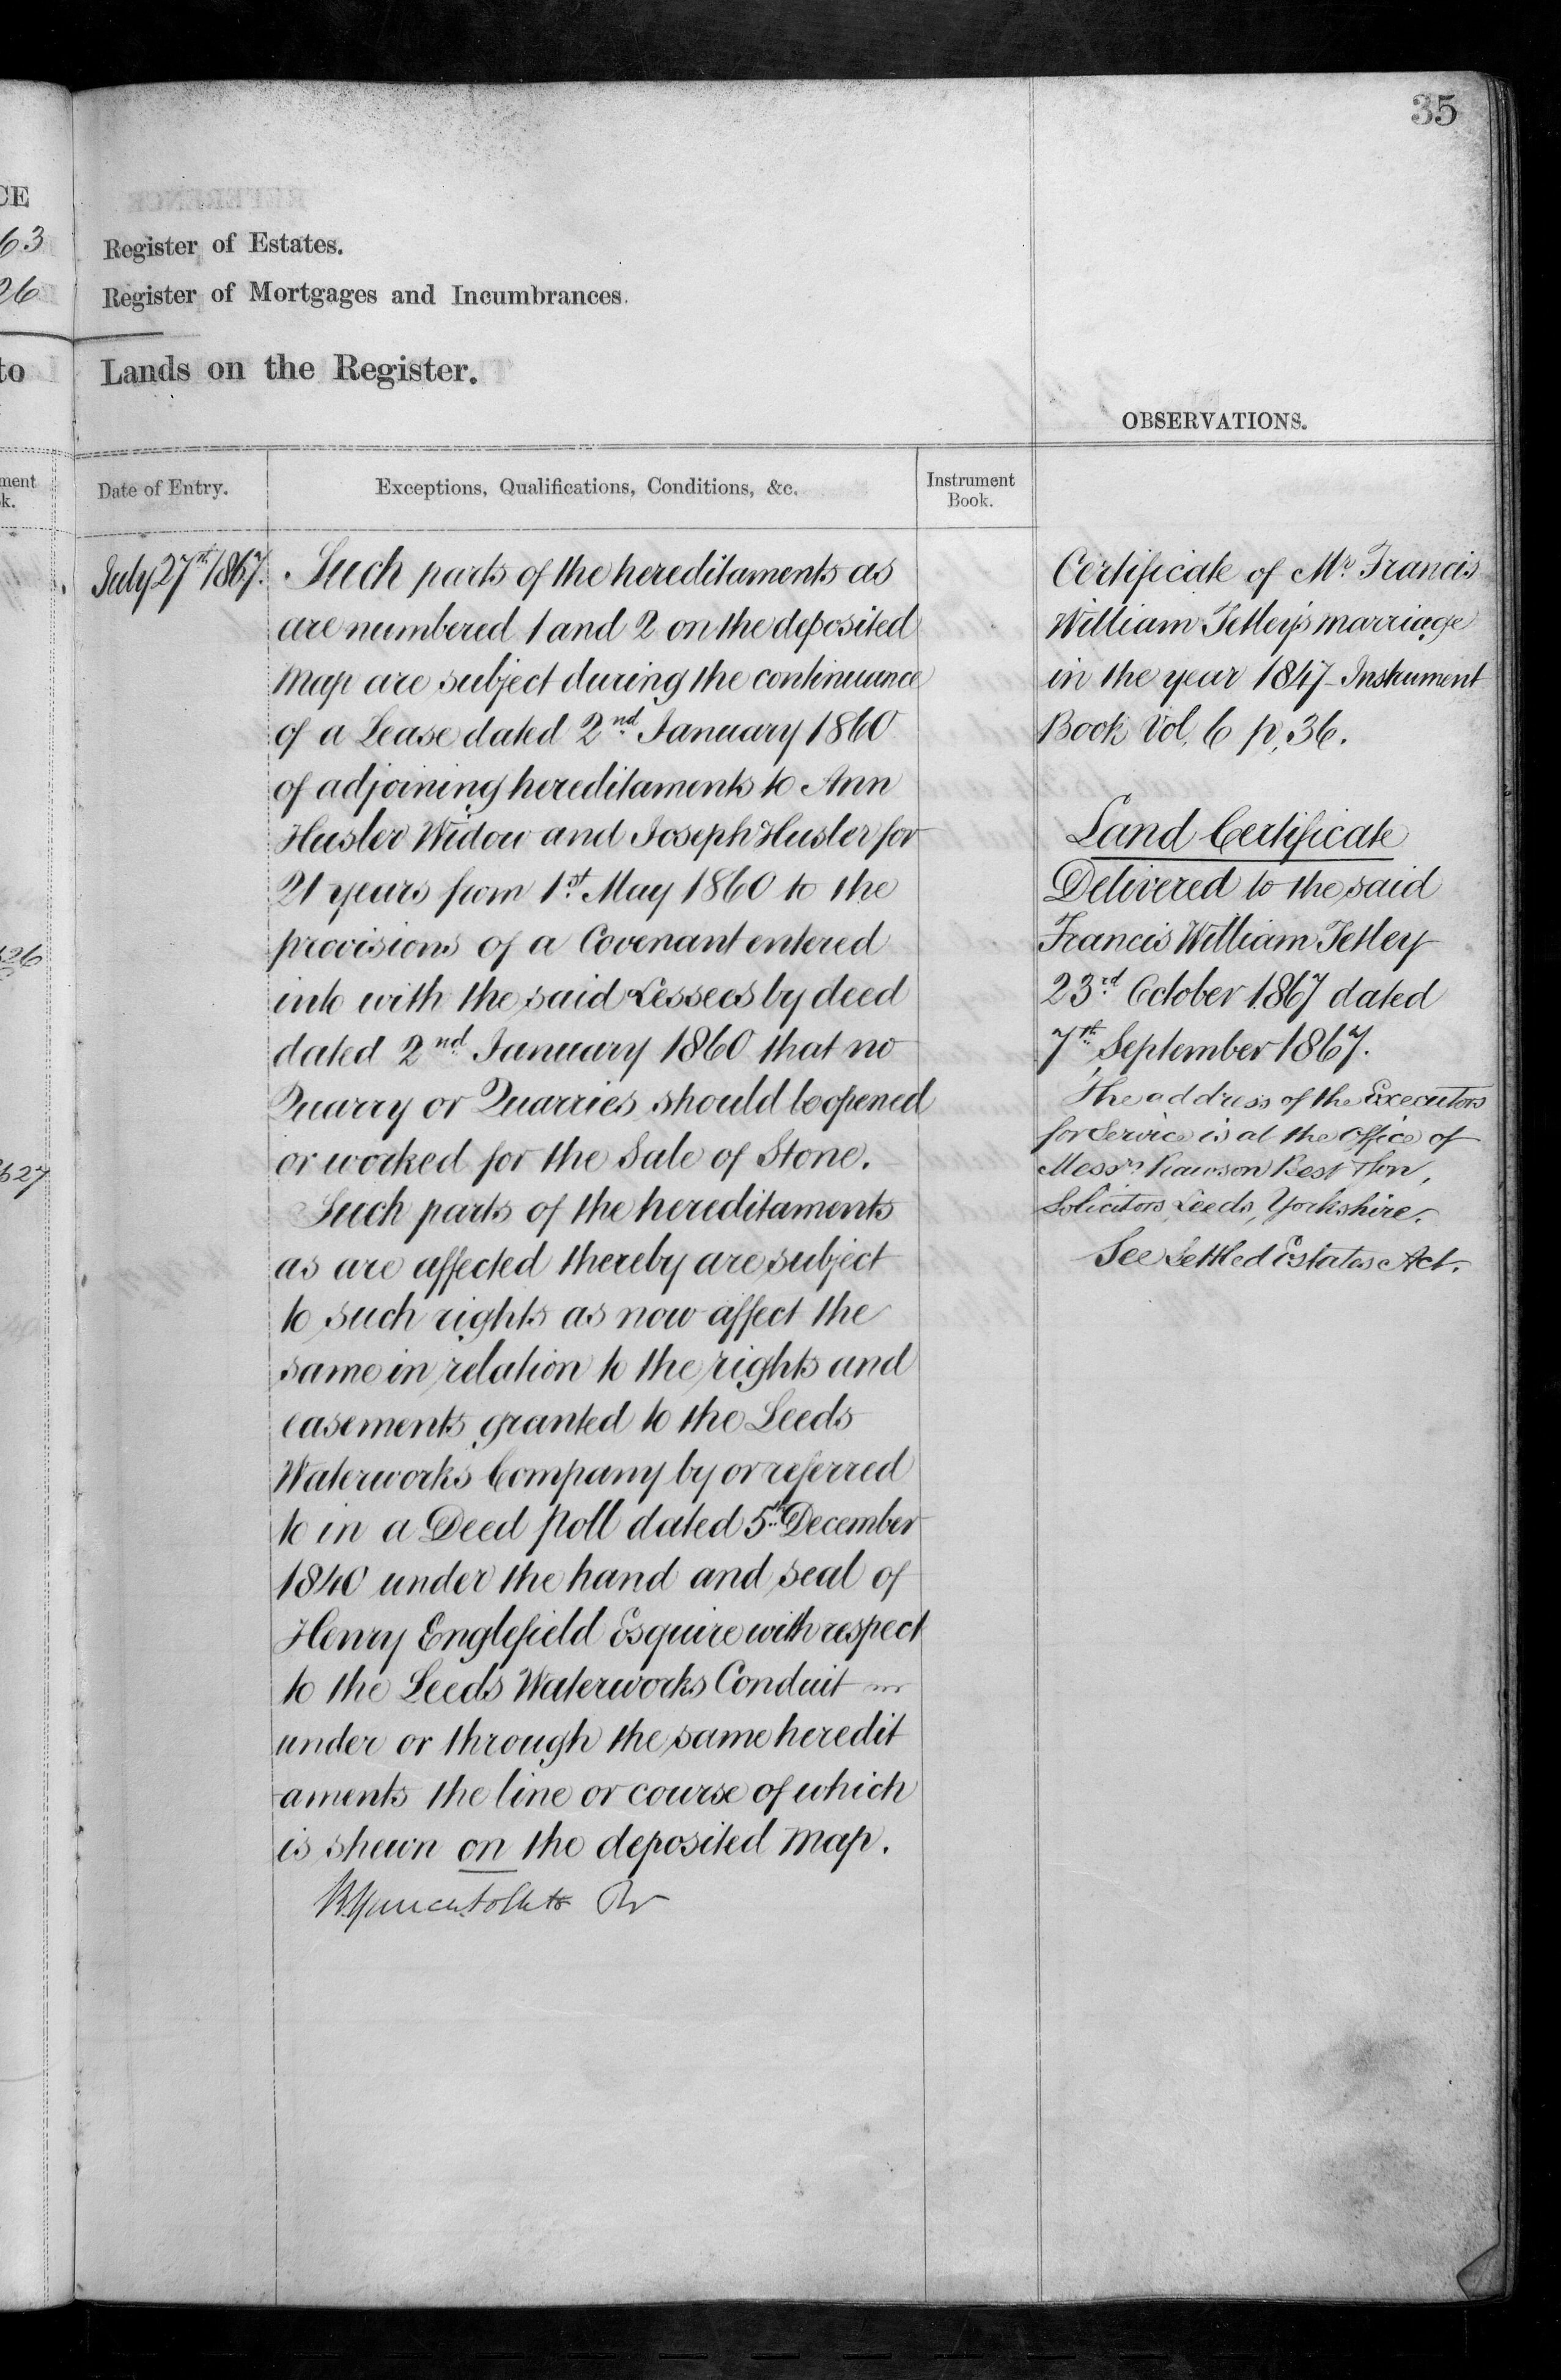 35
CE
63
26
to
ment
k.
326
327
Register of Estates.
Register of Mortgages and Incumbrances.
Lands on the Register.
OBSERVATIONS.
Date of Entry.
Exceptions, Qualifications, Conditions, &c.
Instrument
Book.
July 27st 1867.
Such parts of the hereditaments as
are numbered 1 and 2 on the deposited
Map are subject during the continuance
of a Lease dated 2nd January 1860
of adjoining hereditaments to Ann
Husler Widow and Joseph Husler for
21 years from 1st May 1860 to the
provisions of a Covenant entered
into with the said Lessees by deed
dated 2nd January 1860 that no
Quarry or Quarries should be opened
or worked for the Sale of Stone.
Such parts of the hereditaments
as are affected thereby are subject
to such rights as now affect the
same in relation to the rights and
easements granted to the Leeds
Waterworks Company by or referred
to in a Deed Poll dated 5th December
1840 under the hand and seal of
Henry Englefield Esquire with respect
to the Leeds Waterworks Conduit in
under or through the same heredit
aments the line or course of which
is shewn on the deposited Map.
Certificate of Mr Francis
William Tetley's marriage
in the year 1847 - Instrument
Book Vol. 6 p, 36.
Land Certificate
Delivered to the said
Francis William Tetley
23rd October 1867 dated
7st September 1867.
The address of the Executors
for Service is at the Office of
Messrs Rawson Best & Son,
Solicitors Leeds, Yorkshire.
See Settled Estates Act.